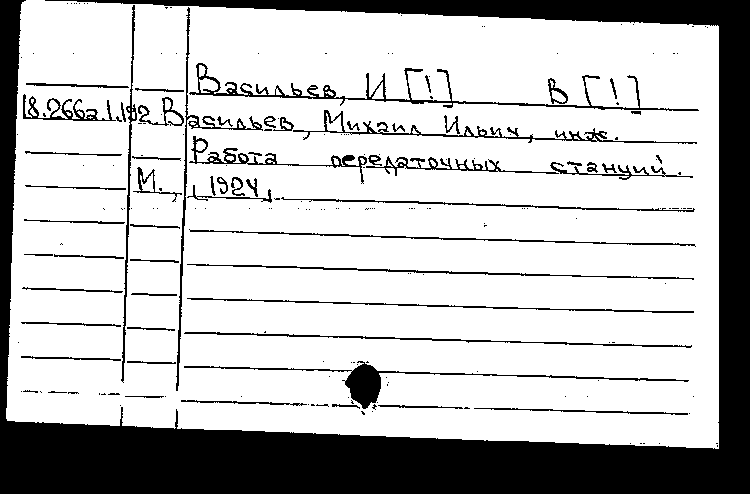 Васильев, И [!] В [!]
18.266а.1.192 Васильев, Михаил Ильич, инж.
Работа передаточных станций.
М., [1924].